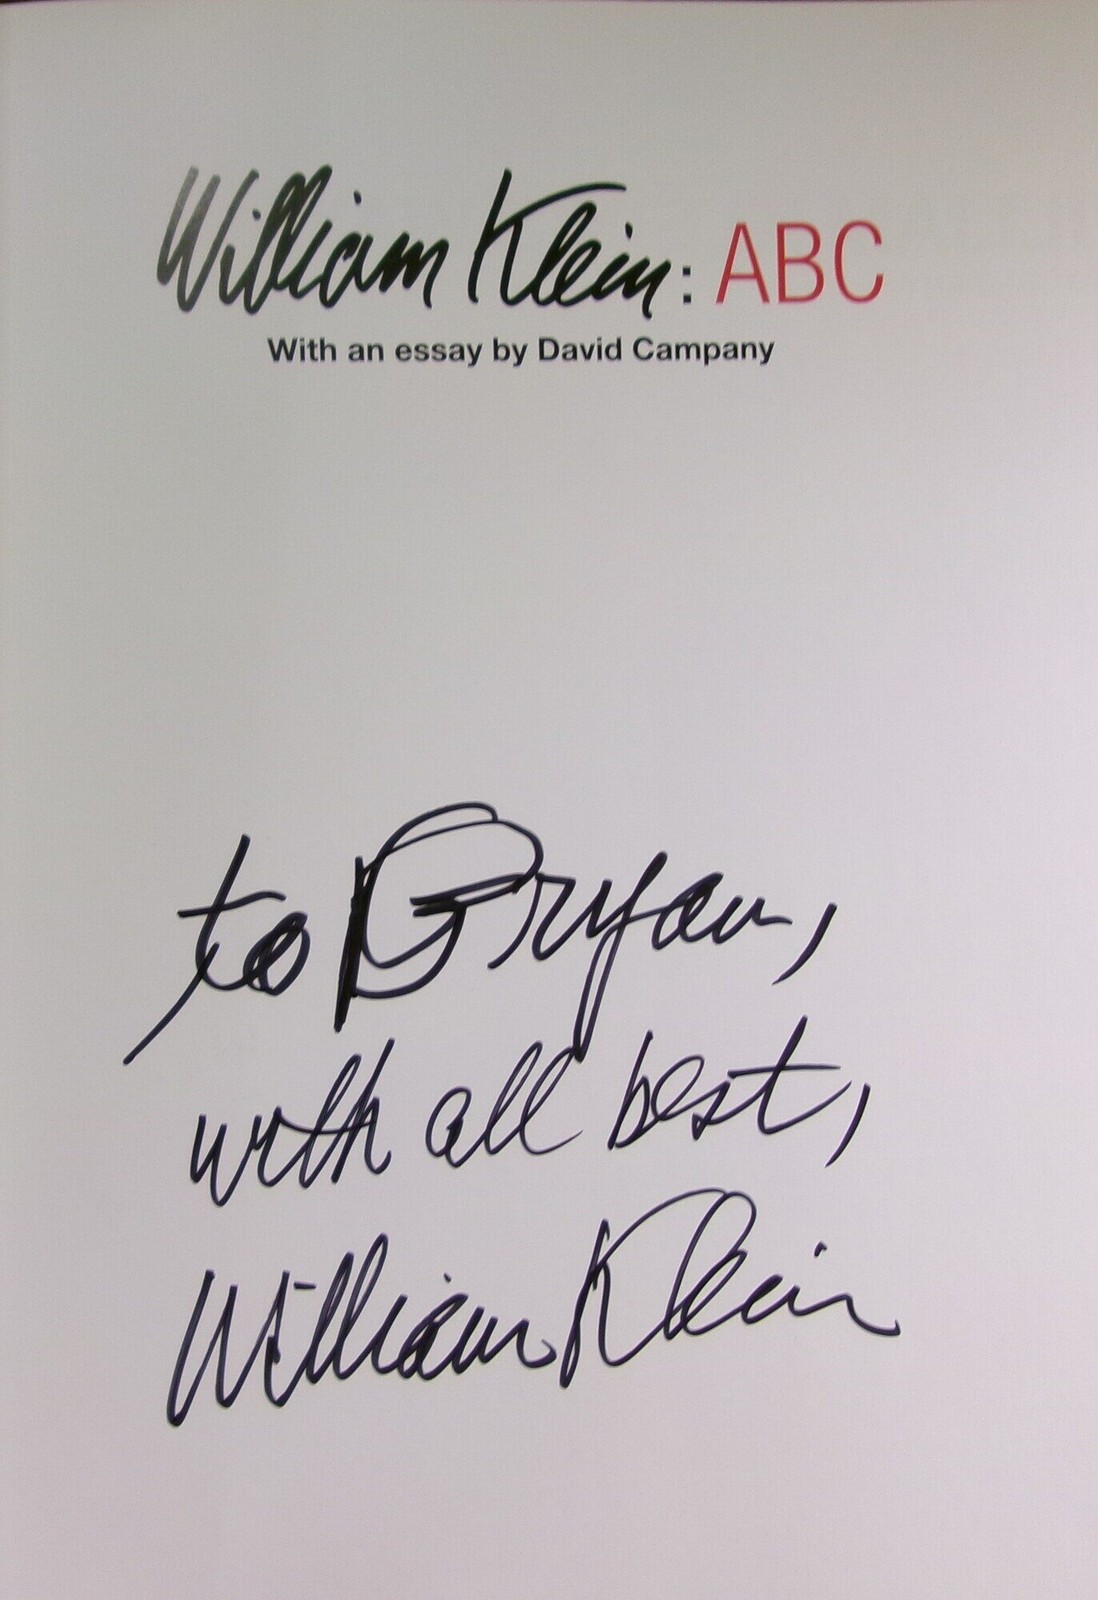 William Klein: ABC
With an essay by David Campany
to Bryan,
with all best,
William Klein